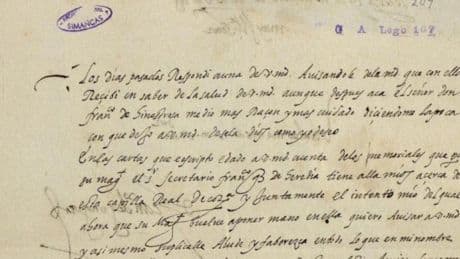 SIMANCAS
207
C A Lego 167
Los dias pasados Respondi a una de v.md. Avisandole de la md. que con ella
Recibi en saber de la salud de v.md. aunque despues aca el señor don
franco. de hinestrosa me dio mas Raçon y mas cuidado diciendome la poca
con que dexo a v.md. desela dios como yo deseo
En las cartas que e scripto e dado a v.md. cuenta de los memoriales que
su magd. el sr. secretario franco. de heredia tiene alla mios acerca de
esta capilla Real de y juntamente el intento mio del qual
ahora que su Magd. buelve a poner mano en ella quiero Avisar a v.md.
y asi mesmo suplicalle Aiude y faborezca en todo lo que en mi nombre